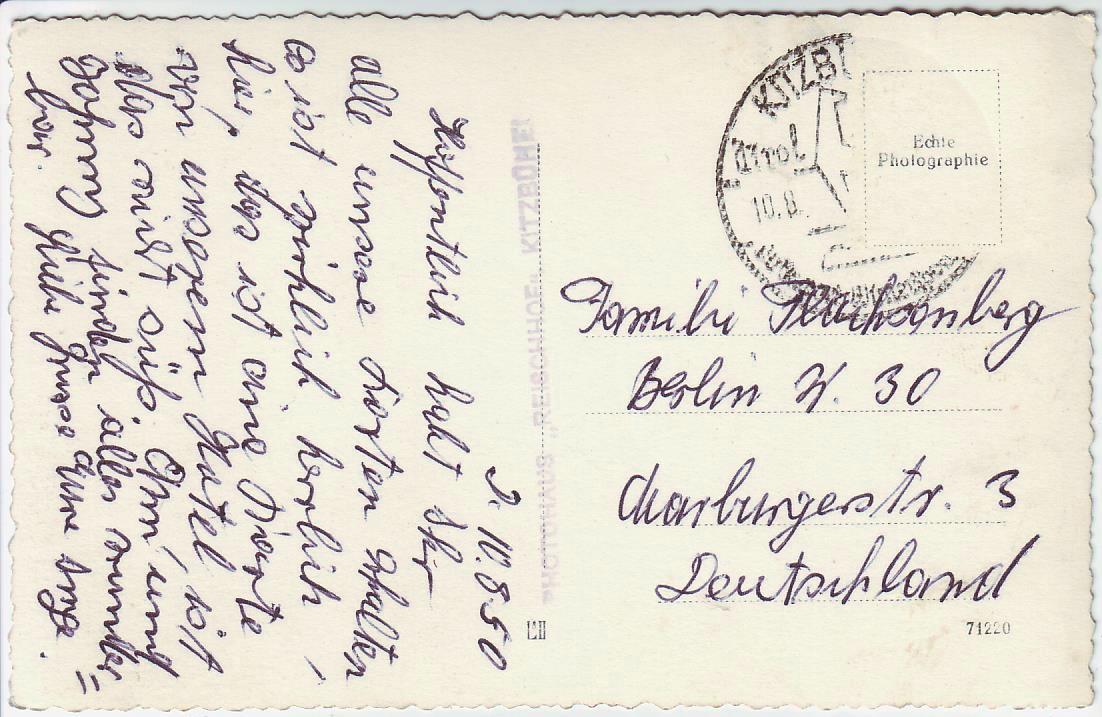 D. 10.8.50
Hoffentlich habt Ihr
alle unsere Karten erhalten
es ist wirklich herrlich
hier, das ist eine Karte
von unserem Hotel, ist
das nicht süß. Omi, und
Johnny finden alles wunder=
bar. Liebe Grüsse Eure Inge.
PHOTOHAUS „REISCHHOF“ KITZBÜHEL
KITZB
Tirol
10.8.
Echte
Photographie
Familie
Berlin W. 30
Marburgerstr. 3
Deutschland
71220